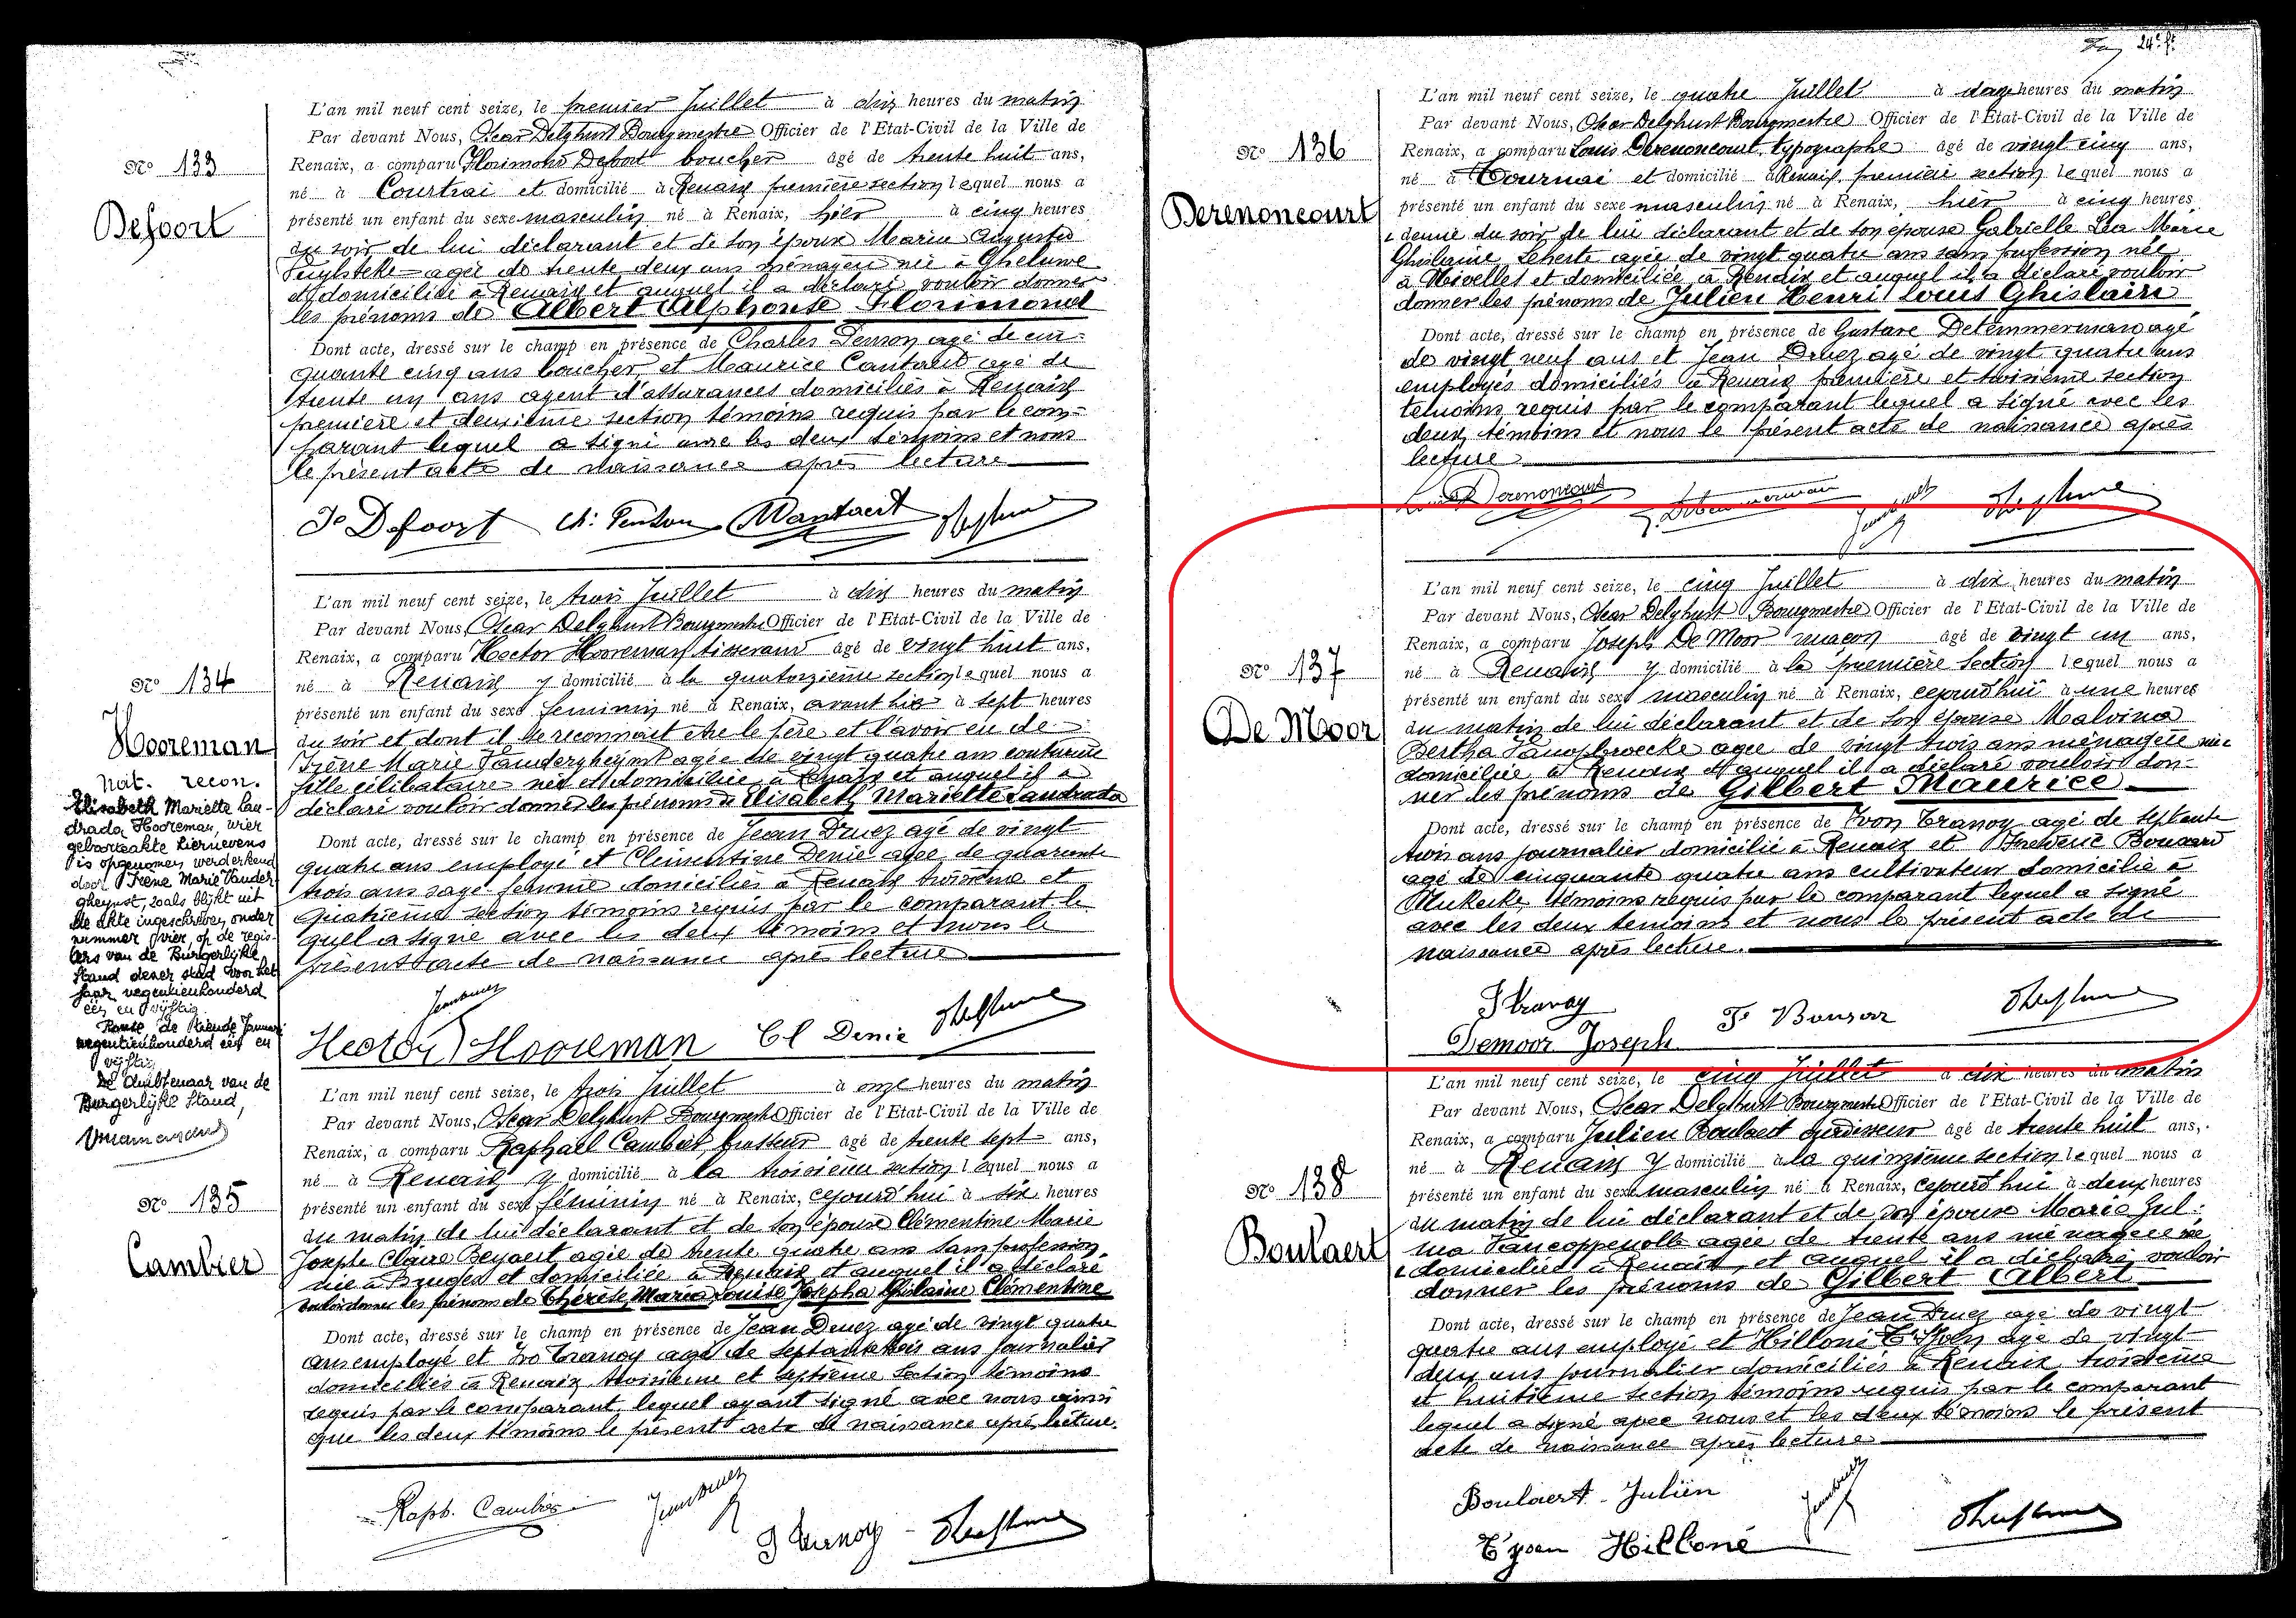 Nº 133
Defoort
L'an mil neuf cent seize, le premier Juillet à dix heures du matin
Par devant Nous, Oscar Delghust Bourgmestre Officier de l'Etat-Civil de la Ville de
Renaix, a comparu Florimond Defoort boucher âgé de trente huit ans,
né à Courtrai et domicilié à Renaix première section lequel nous a
présenté un enfant du sexe masculin né à Renaix, hier à cinq heures
du soir de lui déclarant et de son épouse Marie Augusta
agée de trente deux ans ménagère née à Gheluwe
et domiciliée à Renaix et auquel il a déclaré vouloir donner
les prénoms de Albert Alphonse Florimond
Dont acte, dressé sur le champ en présence de Charles Penson agé de cin-
quante cinq ans boucher et Maurice agé de
trente un ans agent d'assurances domiciliés à Renaix
première et deuxième section témoins requis par le com-
parant lequel a signé avec les deux témoins et nous
le présent acte de naissance après lecture
Fo Defoort Ch: Penson
Nº 134
Hooreman
Nat. recon.
Elisabeth Mariette Lan-
drada Hooreman, wier
geboorteakte hiernevens
is opgenomen, werd erkend
door Irène Marie Vander-
gheynst, zoals blijkt uit
de akte ingeschreven onder
nummer vier, op de regis-
ters van de Burgerlijke
Stand dezer stad voor het
jaar negentienhonderd
één en vijftig.
Ronse, de tiende Januari
negentienhonderd één en
vijftig.
De Ambtenaar van de
Burgerlijke Stand,
L'an mil neuf cent seize, le trois Juillet à dix heures du matin
Par devant Nous, Oscar Delghust Bourgmestre Officier de l'Etat-Civil de la Ville de
Renaix, a comparu Hector Hooreman tisserand âgé de vingt huit ans,
né à Renaix y domicilié à la quatorzième section lequel nous a
présenté un enfant du sexe féminin né à Renaix, avant hier à sept heures
du soir et dont il se reconnait etre le père et l'avoir eu de
Irène Marie Vandergheynst agée de vingt quatre ans couturière
fille célibataire née et domiciliée à Renaix et auquel il a
déclaré vouloir donner les prénoms de Elisabeth Mariette Landrada
Dont acte, dressé sur le champ en présence de Jean Druez agé de vingt
quatre ans employé et Clémentine Denie agée de quarante
trois ans sage femme domiciliés à Renaix troisième et
quatrième section témoins requis par le comparant le-
quel a signé avec les deux témoins et nous le
présent acte de naissance après lecture
Hector Hooreman Cl Denie
Nº 135
Cambier
L'an mil neuf cent seize, le trois Juillet à onze heures du matin
Par devant Nous, Oscar Delghust Bourgmestre Officier de l'Etat-Civil de la Ville de
Renaix, a comparu Raphaël Cambier brasseur âgé de trente sept ans,
né à Renaix y domicilié à la troisième section lequel nous a
présenté un enfant du sexe féminin né à Renaix, cejourd'hui à six heures
du matin de lui déclarant et de son épouse Clémentine Marie
Josephe Claire Beyaert agée de trente quatre ans sans profession
née à Bruges et domiciliée à Renaix et auquel il a déclaré
vouloir donner les prénoms de Thérèse Maria Louise Josepha Ghislaine Clémentine
Dont acte, dressé sur le champ en présence de Jean Druez agé de vingt quatre
ans employé et Ivo Tranoy agé de septante trois ans journalier
domiciliés à Renaix troisième et septième section témoins
requis par le comparant lequel ayant signé avec nous ainsi
que les deux témoins le présent acte de naissance après lecture.
Raph. Cambier
24e f.
Nº 136
Derenoncourt
L'an mil neuf cent seize, le quatre Juillet à onze heures du matin
Par devant Nous, Oscar Delghust Bourgmestre Officier de l'Etat-Civil de la Ville de
Renaix, a comparu Louis Derenoncourt typographe âgé de vingt cinq ans,
né à Tournai et domicilié à Renaix première section lequel nous a
présenté un enfant du sexe masculin né à Renaix, hier à cinq heures
& demie du soir de lui déclarant et de son épouse Gabrielle Léa Marie
Ghislaine Leherte agée de vingt quatre ans sans profession née
à Nivelles et domiciliée à Renaix et auquel il a déclaré vouloir
donner les prénoms de Julien Henri Louis Ghislain
Dont acte, dressé sur le champ en présence de Gustave Detemmerman agé
de vingt neuf ans et Jean Druez agé de vingt quatre ans
employés domiciliés à Renaix première et troisième section
témoins requis par le comparant lequel a signé avec les
deux témoins et nous le présent acte de naissance après
lecture
Louis Derenoncourt
Nº 137
De Moor
L'an mil neuf cent seize, le cinq Juillet à dix heures du matin
Par devant Nous, Oscar Delghust Bourgmestre Officier de l'Etat-Civil de la Ville de
Renaix, a comparu Joseph De Moor maçon âgé de vingt un ans,
né à Renaix y domicilié à la première section lequel nous a
présenté un enfant du sexe masculin né à Renaix, cejourd'hui à une heures
du matin de lui déclarant et de son épouse Malvina
Bertha Vanopbroecke agée de vingt trois ans ménagère née
domiciliée à Renaix et auquel il a déclaré vouloir don-
ner les prénoms de Gilbert Maurice
Dont acte, dressé sur le champ en présence de Yvon Tranoy agé de septante
trois ans journalier domicilié à Renaix et Frédéric Bonsard
agé de cinquante quatre ans cultivateur domicilié à
témoins requis par le comparant lequel a signé
avec les deux témoins et nous le présent acte de
naissance après lecture.
I Tranoy
Demoor Joseph
Nº 138
Boulaert
L'an mil neuf cent seize, le cinq Juillet à dix heures du matin
Par devant Nous, Oscar Delghust Bourgmestre Officier de l'Etat-Civil de la Ville de
Renaix, a comparu Julien Boulaert ourdisseur âgé de trente huit ans,
né à Renaix y domicilié à la quinzième section lequel nous a
présenté un enfant du sexe masculin né à Renaix, cejourd'hui à deux heures
du matin de lui déclarant et de son épouse Marie Jul-
ma Vancoppenolle agée de trente ans ménagère née
& domiciliée à Renaix, et auquel il a déclaré vouloir
donner les prénoms de Gilbert Albert
Dont acte, dressé sur le champ en présence de Jean Druez agé de vingt
quatre ans employé et Hilloné T'Sjoen agé de vingt
deux ans journalier domiciliés à Renaix troisième
et huitième section témoins requis par le comparant
lequel a signé avec nous et les deux témoins le présent
acte de naissance après lecture
Boulaert Julien
T'sjoen Hilloné